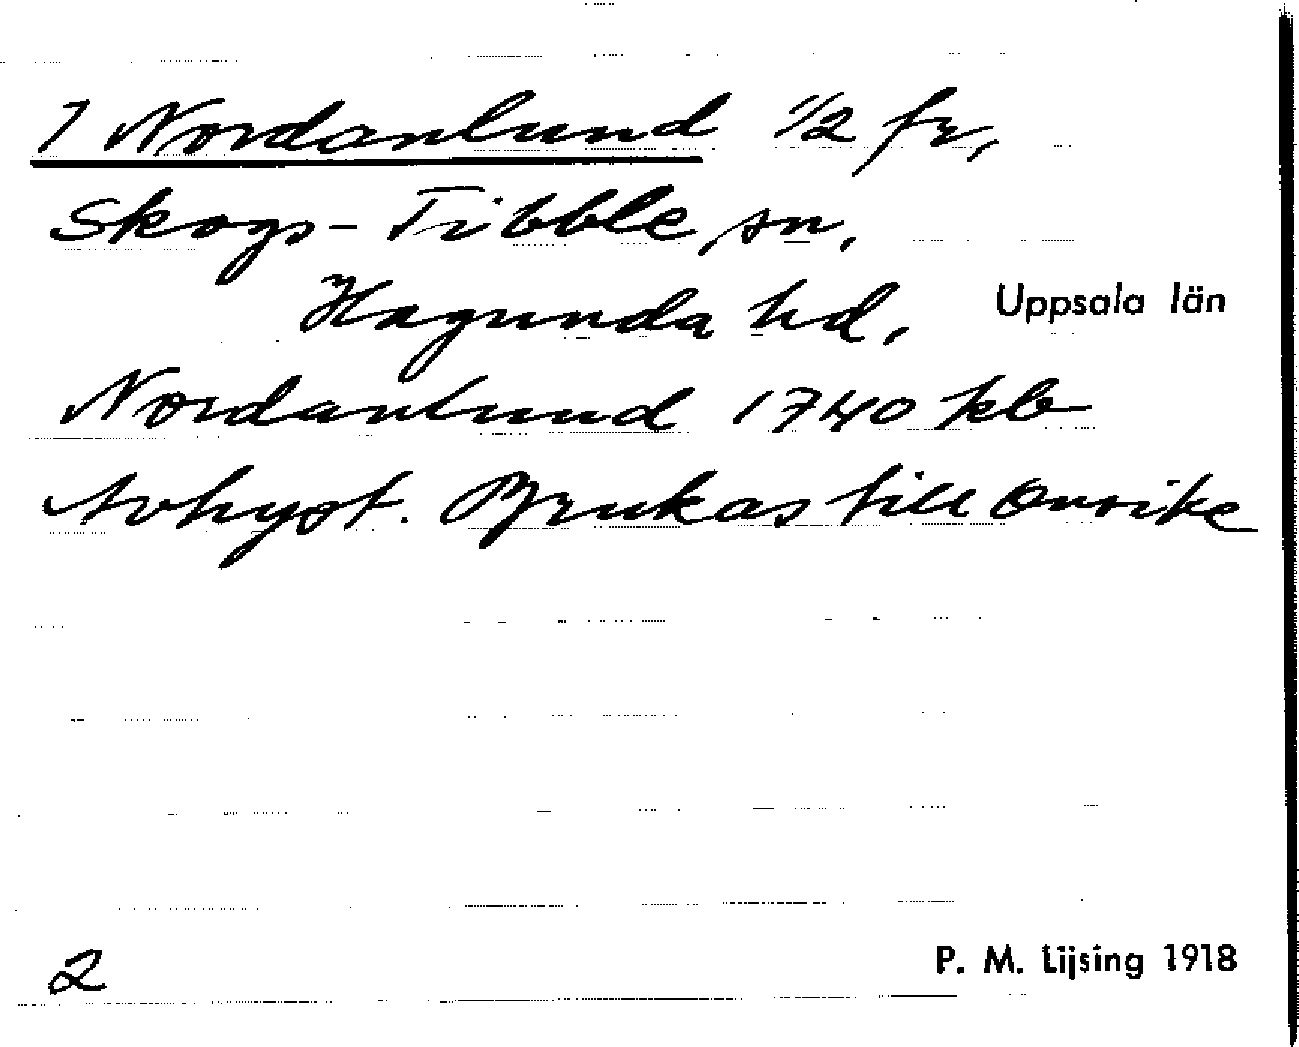 1 Nordanlund 1/2 fr,
Skogs-Tibble sn,
Hagunda hd, Uppsala län
Nordanlund 1740 kb
Avhyst. Brukas till Önsike
2
P. M. Lijsing 1918